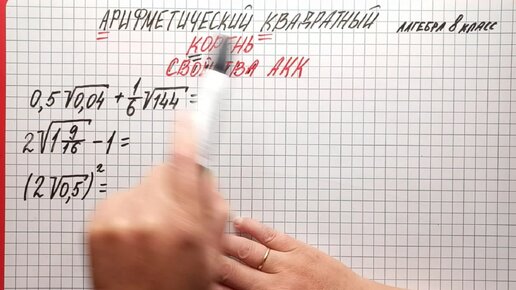 АРИФМЕТИЧЕСКИЙ КВАДРАТНЫЙ АЛГЕБРА 8 КЛАСС
КОРЕНЬ
СВОЙСТВА АКК
0,5√0,04 + 1/6√144 =
2√1 9/16 - 1 =
(2√0,5)² =